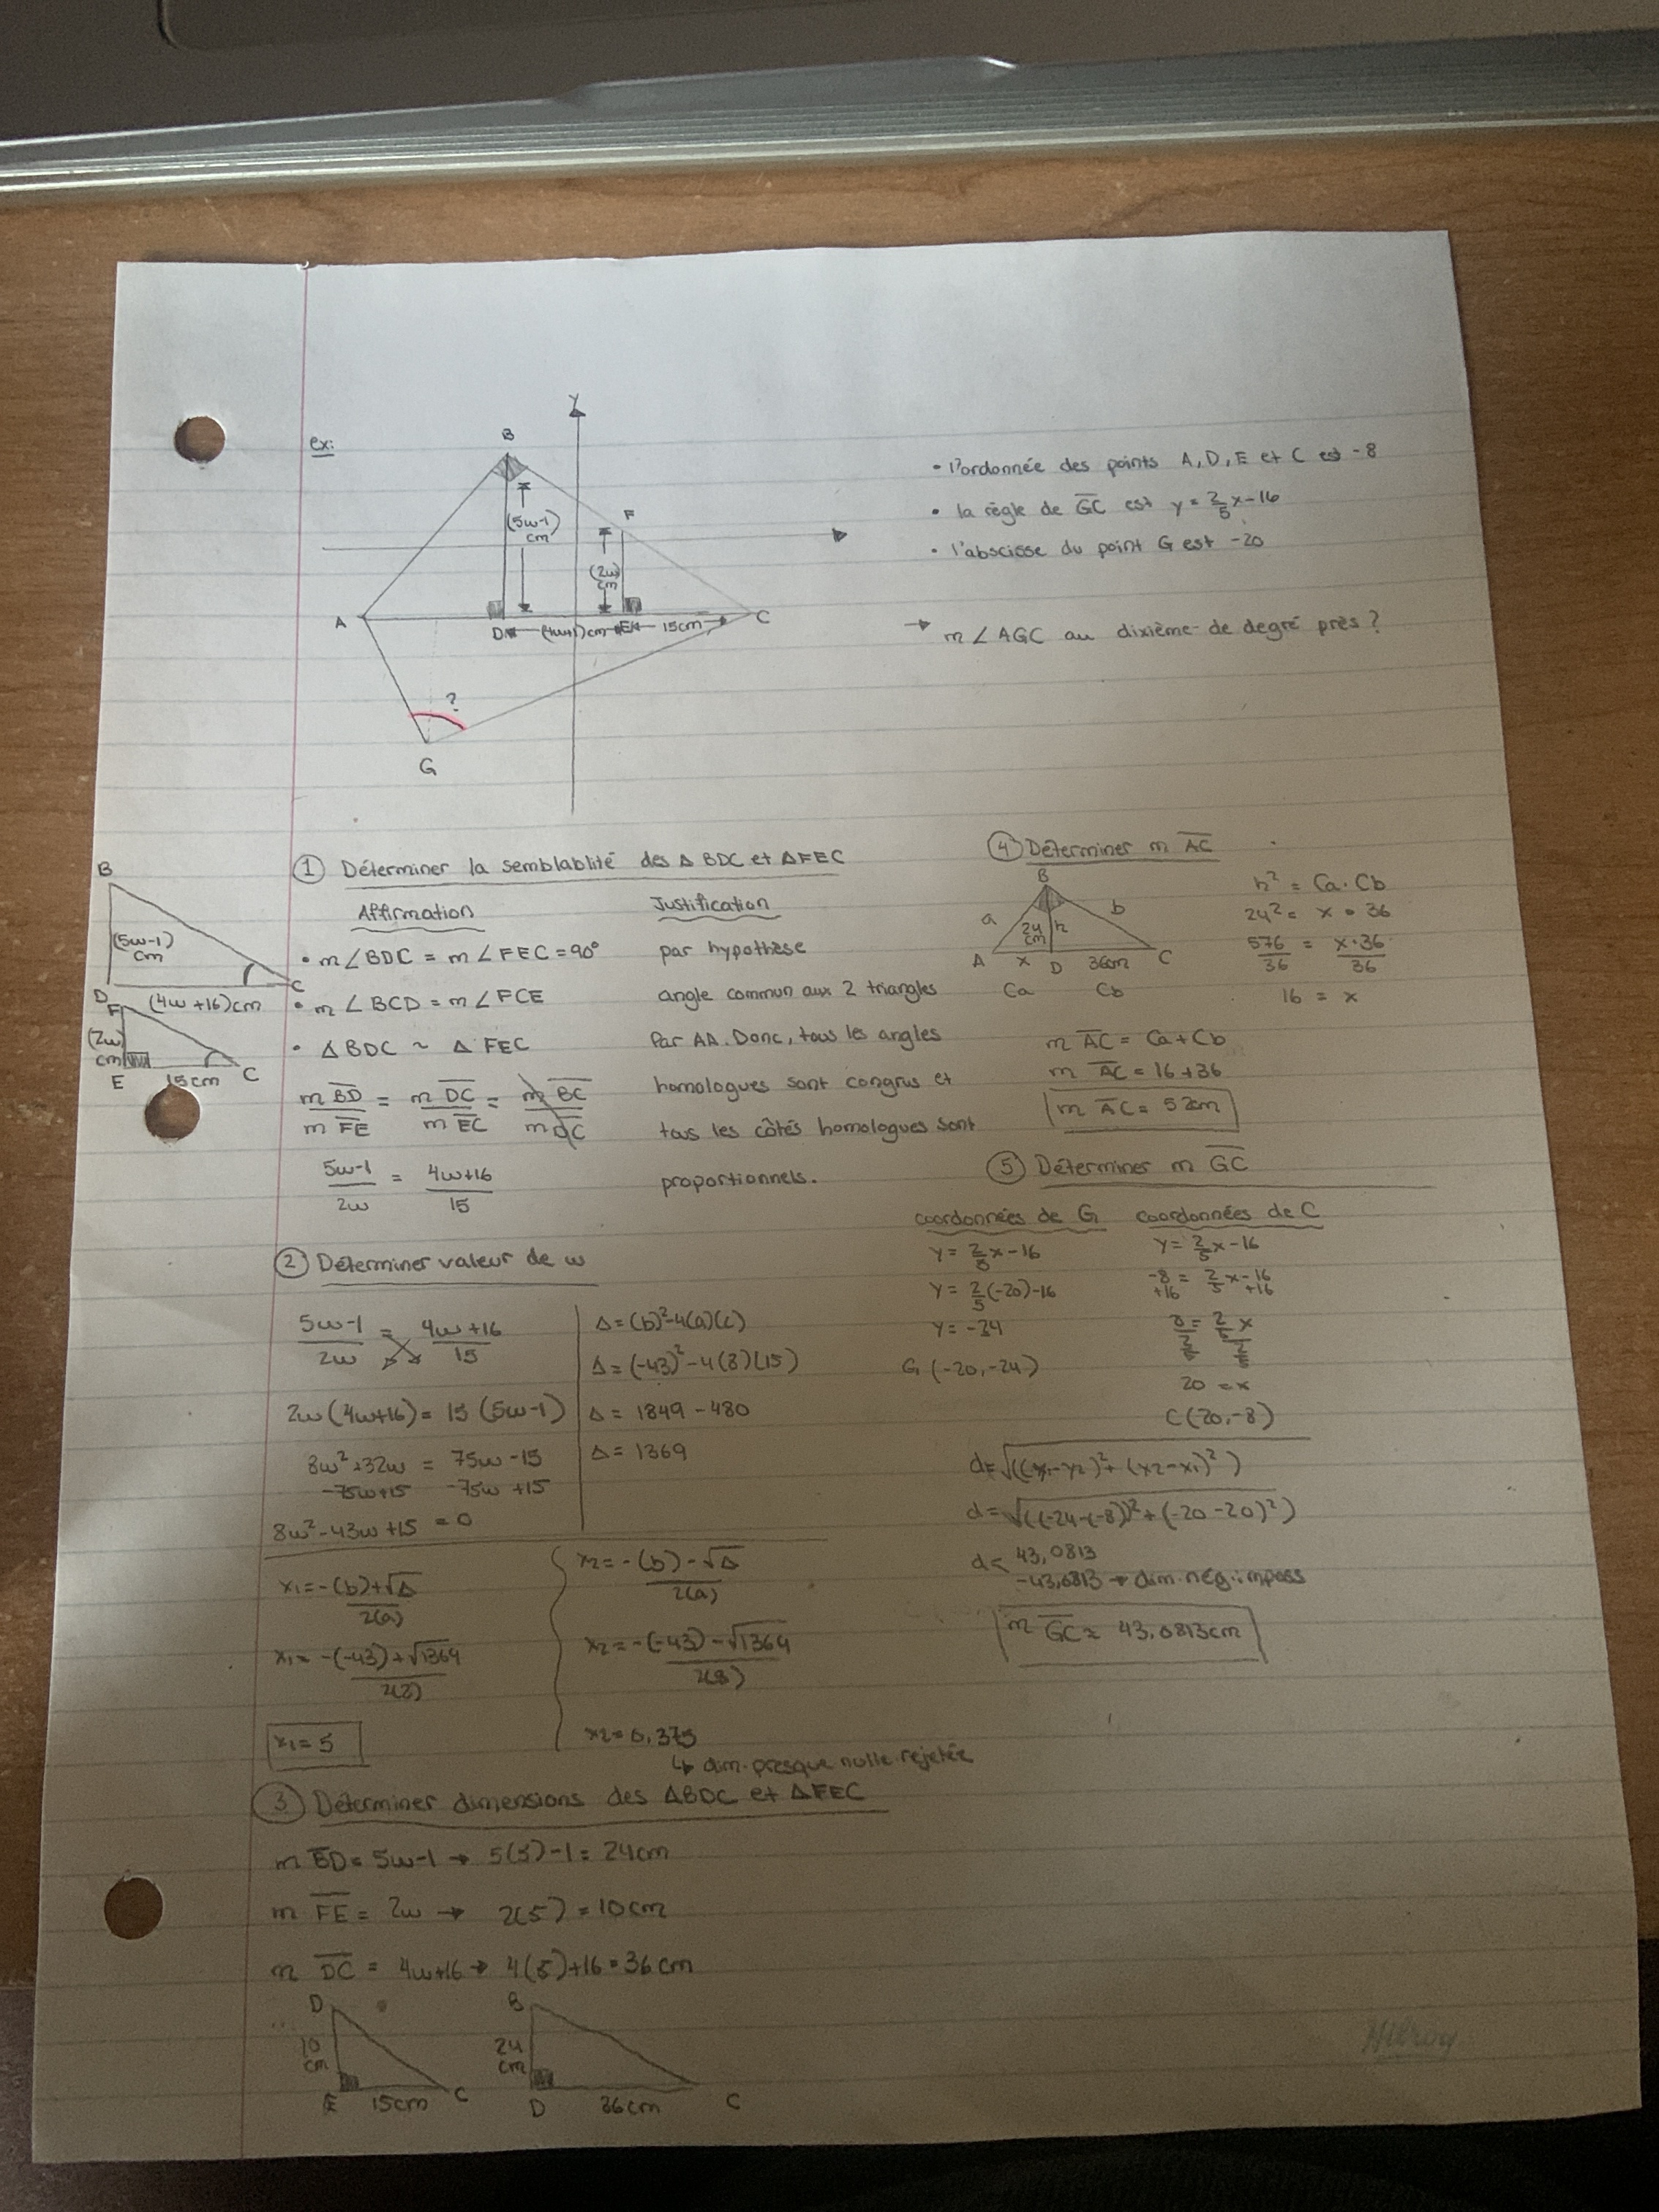 ex:
Y
B
(5w-1)
cm
F
(2w)
cm
A
D
(4w+1)cm
E
15cm
C
?
G
• l'ordonnée des points A, D, E et C est -8
• la règle de GC est y = 2/5 x - 16
• l'abscisse du point G est -20
→ m∠AGC au dixième de degré près?
① Déterminer la semblablité des Δ BDC et ΔFEC
Affirmation Justification
• m∠BDC = m∠FEC = 90° par hypothèse
• m∠BCD = m∠FCE angle commun aux 2 triangles
• ΔBDC ~ ΔFEC Par AA. Donc, tous les angles
homologues sont congrus et
tous les côtés homologues sont
proportionnels.
m BD / m FE = m DC / m EC = m BC / m DC
5w-1 / 2w = 4w+16 / 15
B
(5w-1)
cm
D
(4w+16)cm
C
F
(2w)
cm
E
15cm
C
② Déterminer valeur de w
5w-1 / 2w = 4w+16 / 15
2w(4w+16) = 15(5w-1)
8w²+32w = 75w-15
-75w+15 -75w+15
8w²-43w+15 = 0
Δ = (b)²-4(a)(c)
Δ = (-43)²-4(8)(15)
Δ = 1849 - 480
Δ = 1369
x1 = -(b)+√Δ / 2(a)
x1 = -(-43)+√1369 / 2(8)
x1 = 5
x2 = -(b)-√Δ / 2(a)
x2 = -(-43)-√1369 / 2(8)
x2 = 0,375
↳ dim. presque nulle rejetée
③ Déterminer dimensions des ΔBDC et ΔFEC
m BD = 5w-1 → 5(5)-1 = 24cm
m FE = 2w → 2(5) = 10cm
m DC = 4w+16 → 4(5)+16 = 36cm
D
10
cm
E
15cm
C
B
24
cm
D
36cm
C
④ Déterminer m AC
B
a
b
24
cm
h
A
x
D
36cm
C
Ca
Cb
h² = Ca·Cb
24² = x · 36
576 / 36 = x·36 / 36
16 = x
m AC = Ca+Cb
m AC = 16+36
m AC = 52cm
⑤ Déterminer m GC
coordonnées de G
y = 2/5 x - 16
y = 2/5 (-20) - 16
y = -24
G (-20,-24)
coordonnées de C
y = 2/5 x - 16
-8 = 2/5 x - 16
+16 +16
8 = 2/5 x
20 = x
C(20,-8)
d = √((y1-y2)²+(x2-x1)²)
d = √((-24-(-8))²+(-20-20)²)
d < 43,0813
-43,0813 → dim. nég. imposs
m GC = 43,0813cm
Hilroy